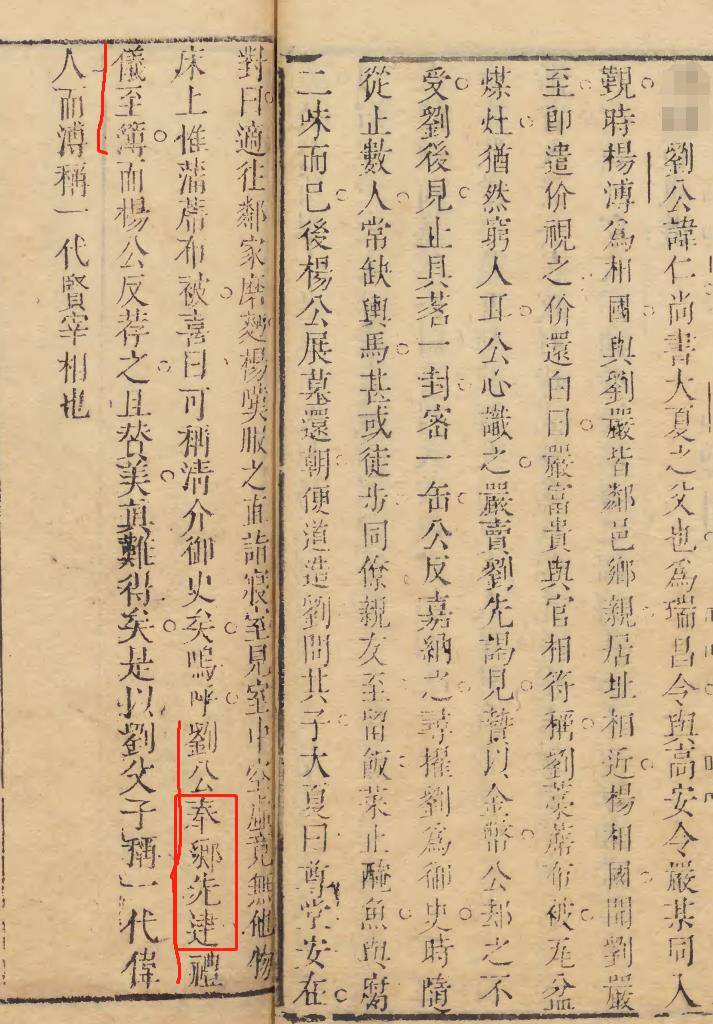 劉公諱仁尚書大夏之父也爲瑞昌令與高安令嚴某同入
覲時楊溥爲相國與劉嚴皆鄰邑鄉親居址相近楊相國聞劉嚴
至卽遣价視之价還白曰嚴富貴與官相符稱劉藁蓆布被瓦盆
煤灶猶然窮人耳公心識之嚴賣劉先謁見贄以金幣公却之不
受劉後見止具茗一封密一缶公反嘉納之尋擢劉爲御史時隨
從止數人常缺輿馬甚或徒步同僚親友至留飯菜止醃魚與腐
二味而已後楊公展墓還朝便道造劉問其子大夏曰尊堂安在
對曰適往鄰家磨麪楊嘆服之直詣寢室見室中空虛竟無他物
床上惟蒲蓆布被喜曰可稱清介御史矣嗚呼劉公奉鄉先達禮
儀至簿而楊公反荐之且替美真難得矣是以劉父子稱一代偉
人而溥稱一代賢宰相也